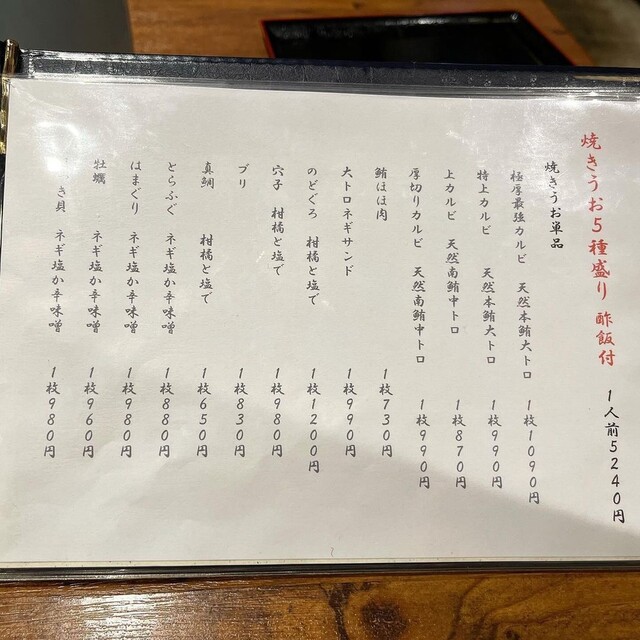 焼きうお5種盛り 酢飯付 1人前5240円
焼きうお単品
極厚最強カルビ 天然本鮪大トロ 1枚1090円
特上カルビ 天然本鮪大トロ 1枚990円
上カルビ 天然南鮪中トロ 1枚870円
厚切りカルビ 天然南鮪中トロ 1枚990円
鮪ほほ肉 1枚730円
大トロネギサンド 1枚990円
のどぐろ 柑橘と塩で 1枚1200円
穴子 柑橘と塩で 1枚980円
ブリ 1枚830円
真鯛 柑橘と塩で 1枚650円
とらふぐ ネギ塩か辛味噌 1枚880円
はまぐり ネギ塩か辛味噌 1枚980円
牡蠣 ネギ塩か辛味噌 1枚960円
き貝 ネギ塩か辛味噌 1枚980円